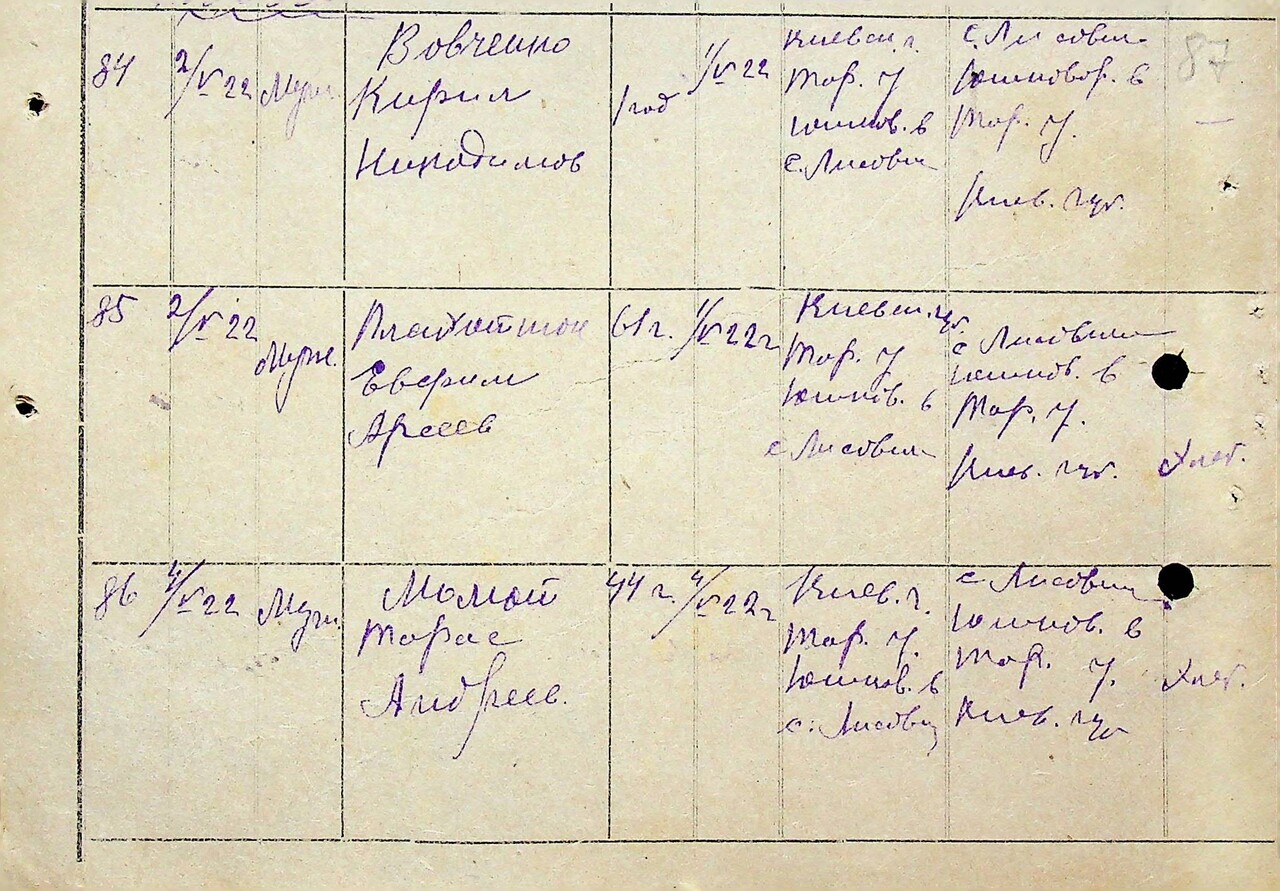 87
84
2/V 22
Мужч.
Вовченко
Кирил
Никодимов
1 год
1/V 22
Киевск. г.
Тар. у
Юшков. в
с. Лисович
с. Лисович
Юшковор. в
Тар. у.
Киев. губ.
85
2/V 22
Мужч.
Евфрим
Арсеев
61 г.
1/V 22 г
Киевск. губ.
Тар. у
Юшков. в
с Лисович
с Лисович
Юшков. в
Тар. у.
Киев. губ.
Хлеб.
86
4/V 22
Мужч.
Момот
Тарас
Андреев.
44 г.
4/V 22 г
Киев. г.
Тар. у.
Юшков. в
с. Лисович
с. Лисович
Юшков. в
Тар. у.
Киев. губ
Хлеб.